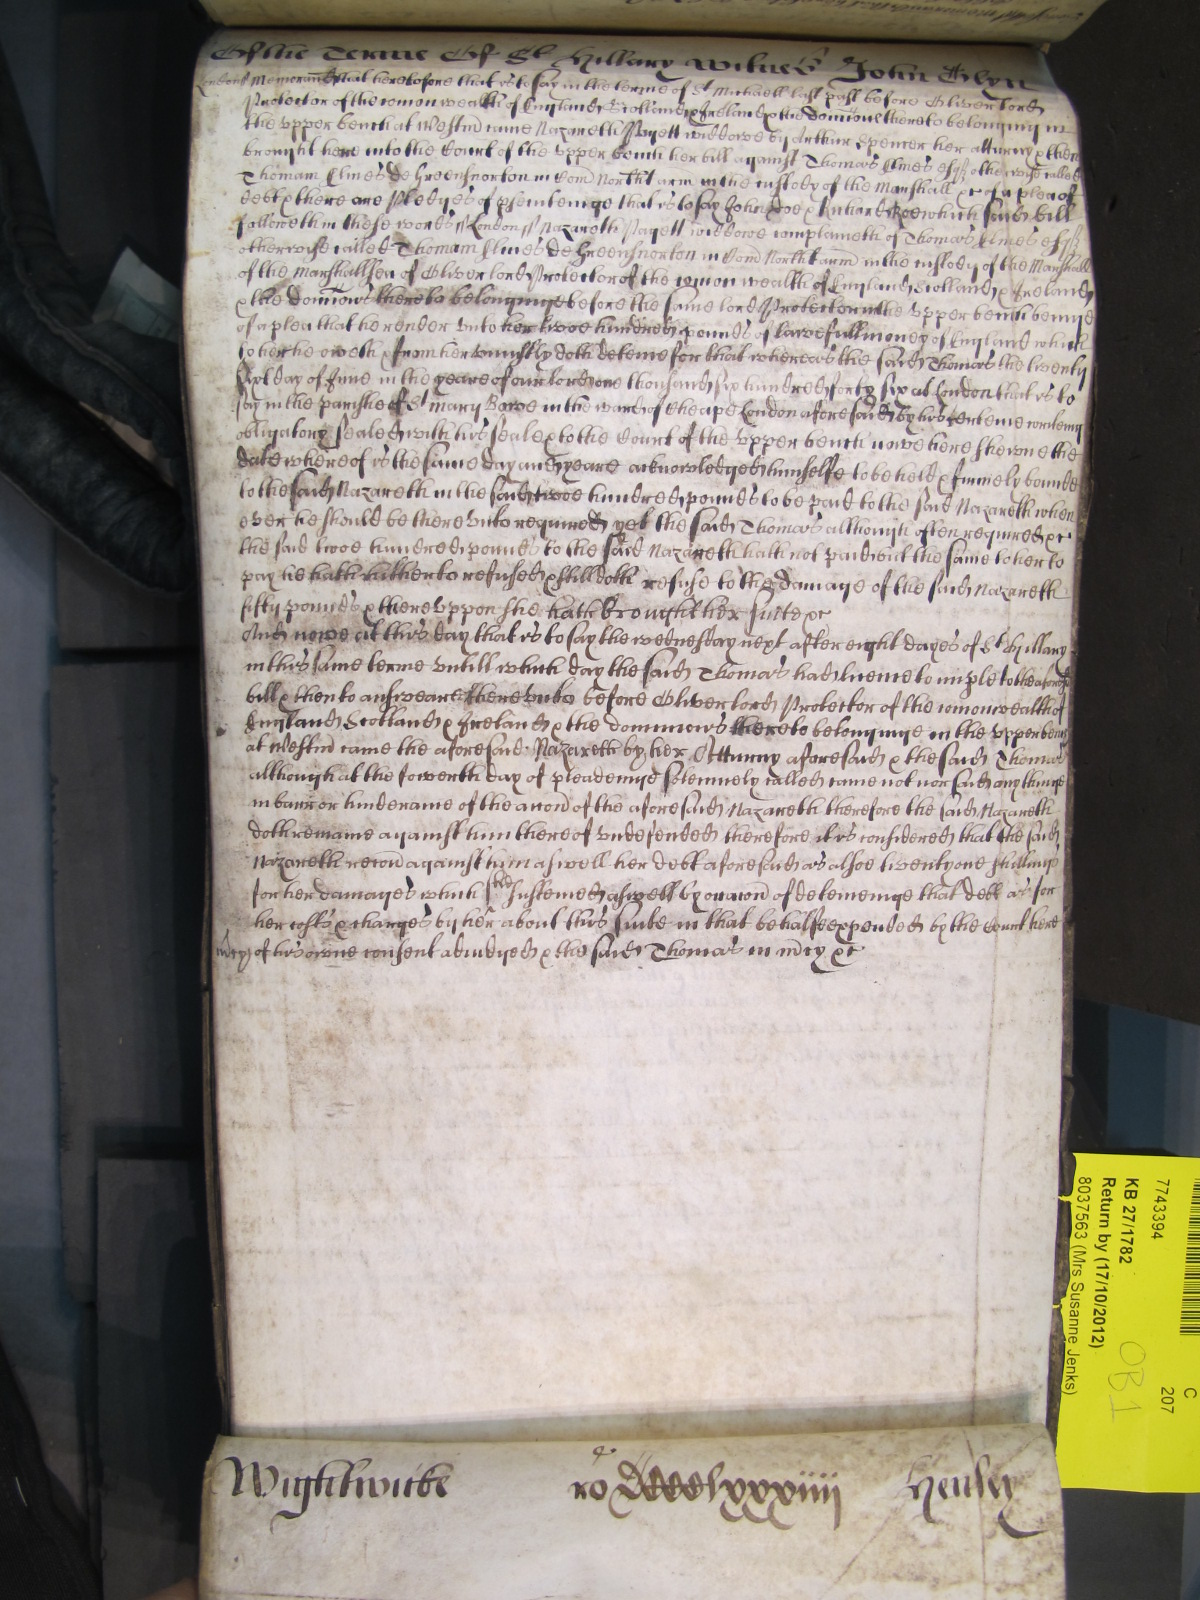 Of the Terme Of St Hillary Witnes John Glyn
London ss Memorand that heretofore that is to say in the terme of St Michaell last past before Oliver lord
Protector of the comon wealth of England Scotland & Ireland & the dominions thereto belonging in
the upper bench at Westmr came Nazareth Pagett widdowe by Arthur Spencer her atturny & then
brought here into the Court of the upper bench her bill against Thomas Elmes esqr otherwise called
Thomam Elmes de Greensnorton in Com North arm in the custody of the Marshall &c of a plea of
debt & there are pledges of prseintinge that is to say John Doe & Richard Roe which said bill
followeth in these words ss London ss Nazareth Pagett widdowe complaineth of Thomas Elmes esqr
otherwise called Thomam Elmes de Greensnorton in Com North arm in the custody of the Marshall
of the Marshallsea of Oliver lord Protector of the comon wealth of England Scotland & Ireland
& the dominions thereto belonginge before the same lord Protector in the upper bench beinge
of a plea that he render unto her twoe hundred pounds of lawfull money of England which
to her he oweth & from her uniustly doth deteine for that whereas the said Thomas the twenty
sixt day of June in the yeare of our lord one thousand six hundred forty six at London that is to
say in the parish of St Mary Bowe in the ward of Cheape London aforesaid by his certeine writeing
obligatory sealed with his seale & to the Court of the upper bench nowe here shewne the
date whereof is the same day and yeare acknowledged himselfe to be held & firmely bounde
to the said Nazareth in the said twoe hundred pounds to be paid to the said Nazareth when
ever he should be thereunto required yet the said Thomas although often required &c
the said twoe hundred pounds to the said Nazareth hath not paid but the same to her to
pay he hath hitherto refused & still doth refuse to the damage of the said Nazareth
fifty pounds & thereuppon she hath brought her suite &c
And nowe at this day that is to say the wednesday next after eight dayes of St Hillary
in this same terme untill which day the said Thomas had licence to imple to the aforesd
bill & then to answeare thereunto before Oliver lord Protector of the comonwealth of
England Scotland & Ireland & the dominions thereto belonginge in the upper bench
at Westmr came the aforesaid Nazareth by her Atturny aforesaid & the said Thomas
although at the fowerth day of pleadeinge solemnely called came not nor said any thinge
in barr or hinderance of the accon of the aforesaid Nazareth therefore the said Nazareth
doth remaine against him thereof undefended therefore it is considered that the said
Nazareth recov against him aswell her debt aforesaid as alsoe twenty one shillings
for her damages which she had susteined aswell by occacon of deteineinge that debt as for
her costs & charges by her about this suite in that behalfe expended by the Court here
mcy of his owne consent adiudged & the said Thomas in mcy &c
Wightwicke ro Dccclxxxiiii Henley
7743394
KB 27/1782
Return by (17/10/2012)
8037563 (Mrs Susanne Jenks)
C
207
OB1